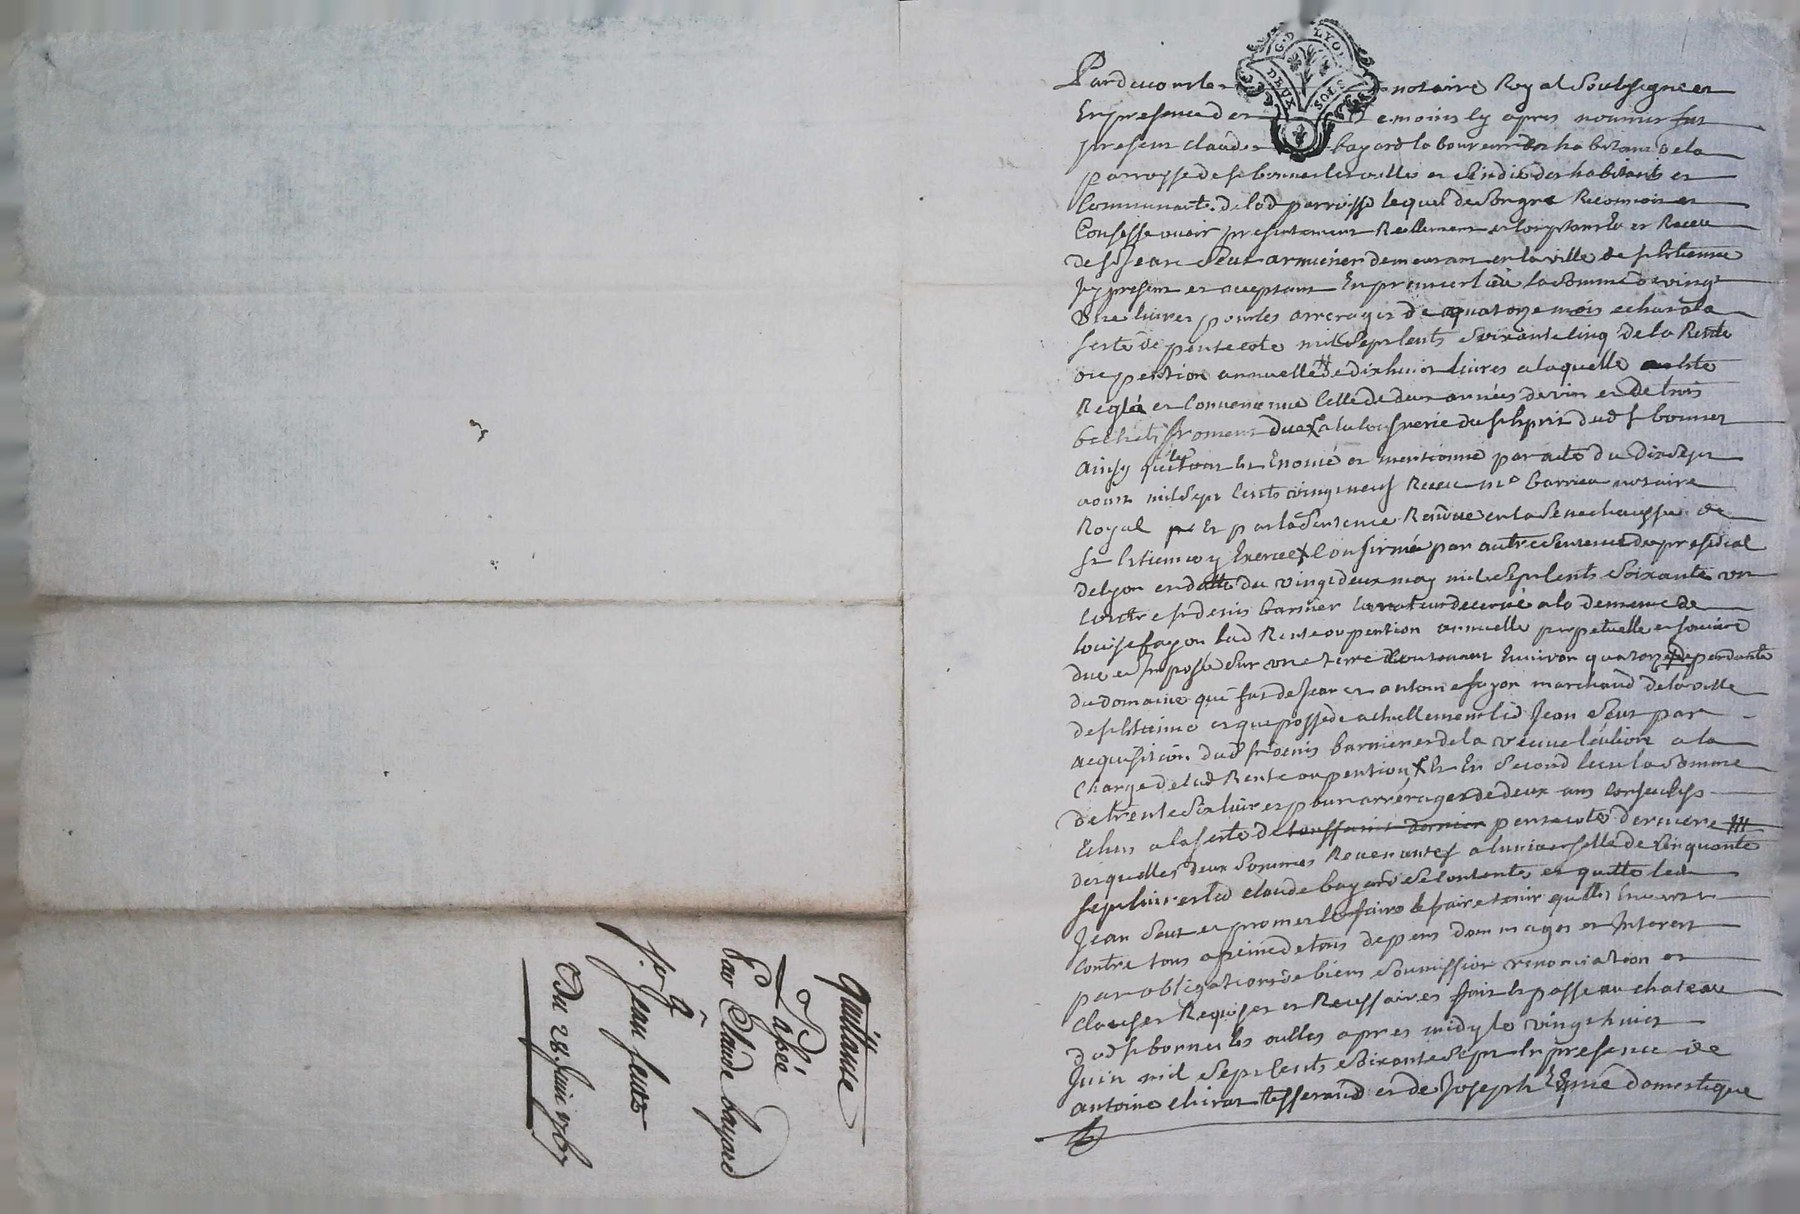 G.D LYON
DEUX SOLS
Pardevant le notaire Royal Soubsigne et
En presence des temoins cy apres nommes fut
present claude bayard laboureur habitant de la
parroisse de st bonnet les oulles et sindic des habitants et
Communauté de lad parroisse lequel de Son gré Reconnoit et
Confesse avoir presentement Reellement et Comptant eu et Receu
de sr Jean Seux armurier demeurant en la ville de st Etienne
icy present et aceptant En premier lieu la Somme de vingt
Une livres pour les arrerages de quatorze mois echus a la
feste de pentecote mil Sept Cents Soixante Cinq de la Rente
ou pention annuelle de dix huit livres a laquelle a eté
Reglé et Convenu celle de deux anées de vin et de trois
bichets froment due a la Confrerie du st Esprit dud st bonnet
ainsy que le tout est Enoncé et mentionné par acte du dix Sept
aout mil Sept Cents vingt neuf Receu me barrieu notaire
Royal Et par la Sentence Rendue en la Senechaussée de
St Etienne y Enoncée Confirmée par autre Sentence du presidial
de lyon en datte du vingt deux may mil Sept Cents Soixante un
Contre sr denis barnier Curateur decerné a la demence de
louise fayon lad Rente ou pention annuelle perpetuelle et fonciere
due et Imposée Sur une terre Contenant Environ quatorze dependante
du domaine qui fut de Jean et antoine fayon marchand de la ville
de st Etienne et que possede actuellement led Jean Seux par
acquisition dud sr denis barnier et de la veuve a la
Charge de lad Rente ou pention Et En Second lieu la Somme
de trente Six livres pour arrérages de deux ans Consecutifs
Echus a la feste de toussaint dernier pentecote derniere
desquelles deux Sommes Revenantes a l'universelle de Cinquante
Sept livres led claude bayard Se Contente et quitte led
Jean Seux et promet le faire tenir quitte Envers et
Contre tous a peine de tous depens dommages et Interest
par obligations de biens Soumission renonciation et
Clauses Requises et Necessaires fait et passé au chateau
dud st bonnet les oulles apres midy le vingt huit
Juin mil Sept Cents Soixante Sept En presence de
antoine chirat tisserand et de Joseph domestique
quittance
Passée
Par Claude bayard
A
Sr Jean Seux
Du 28 Juin 1767